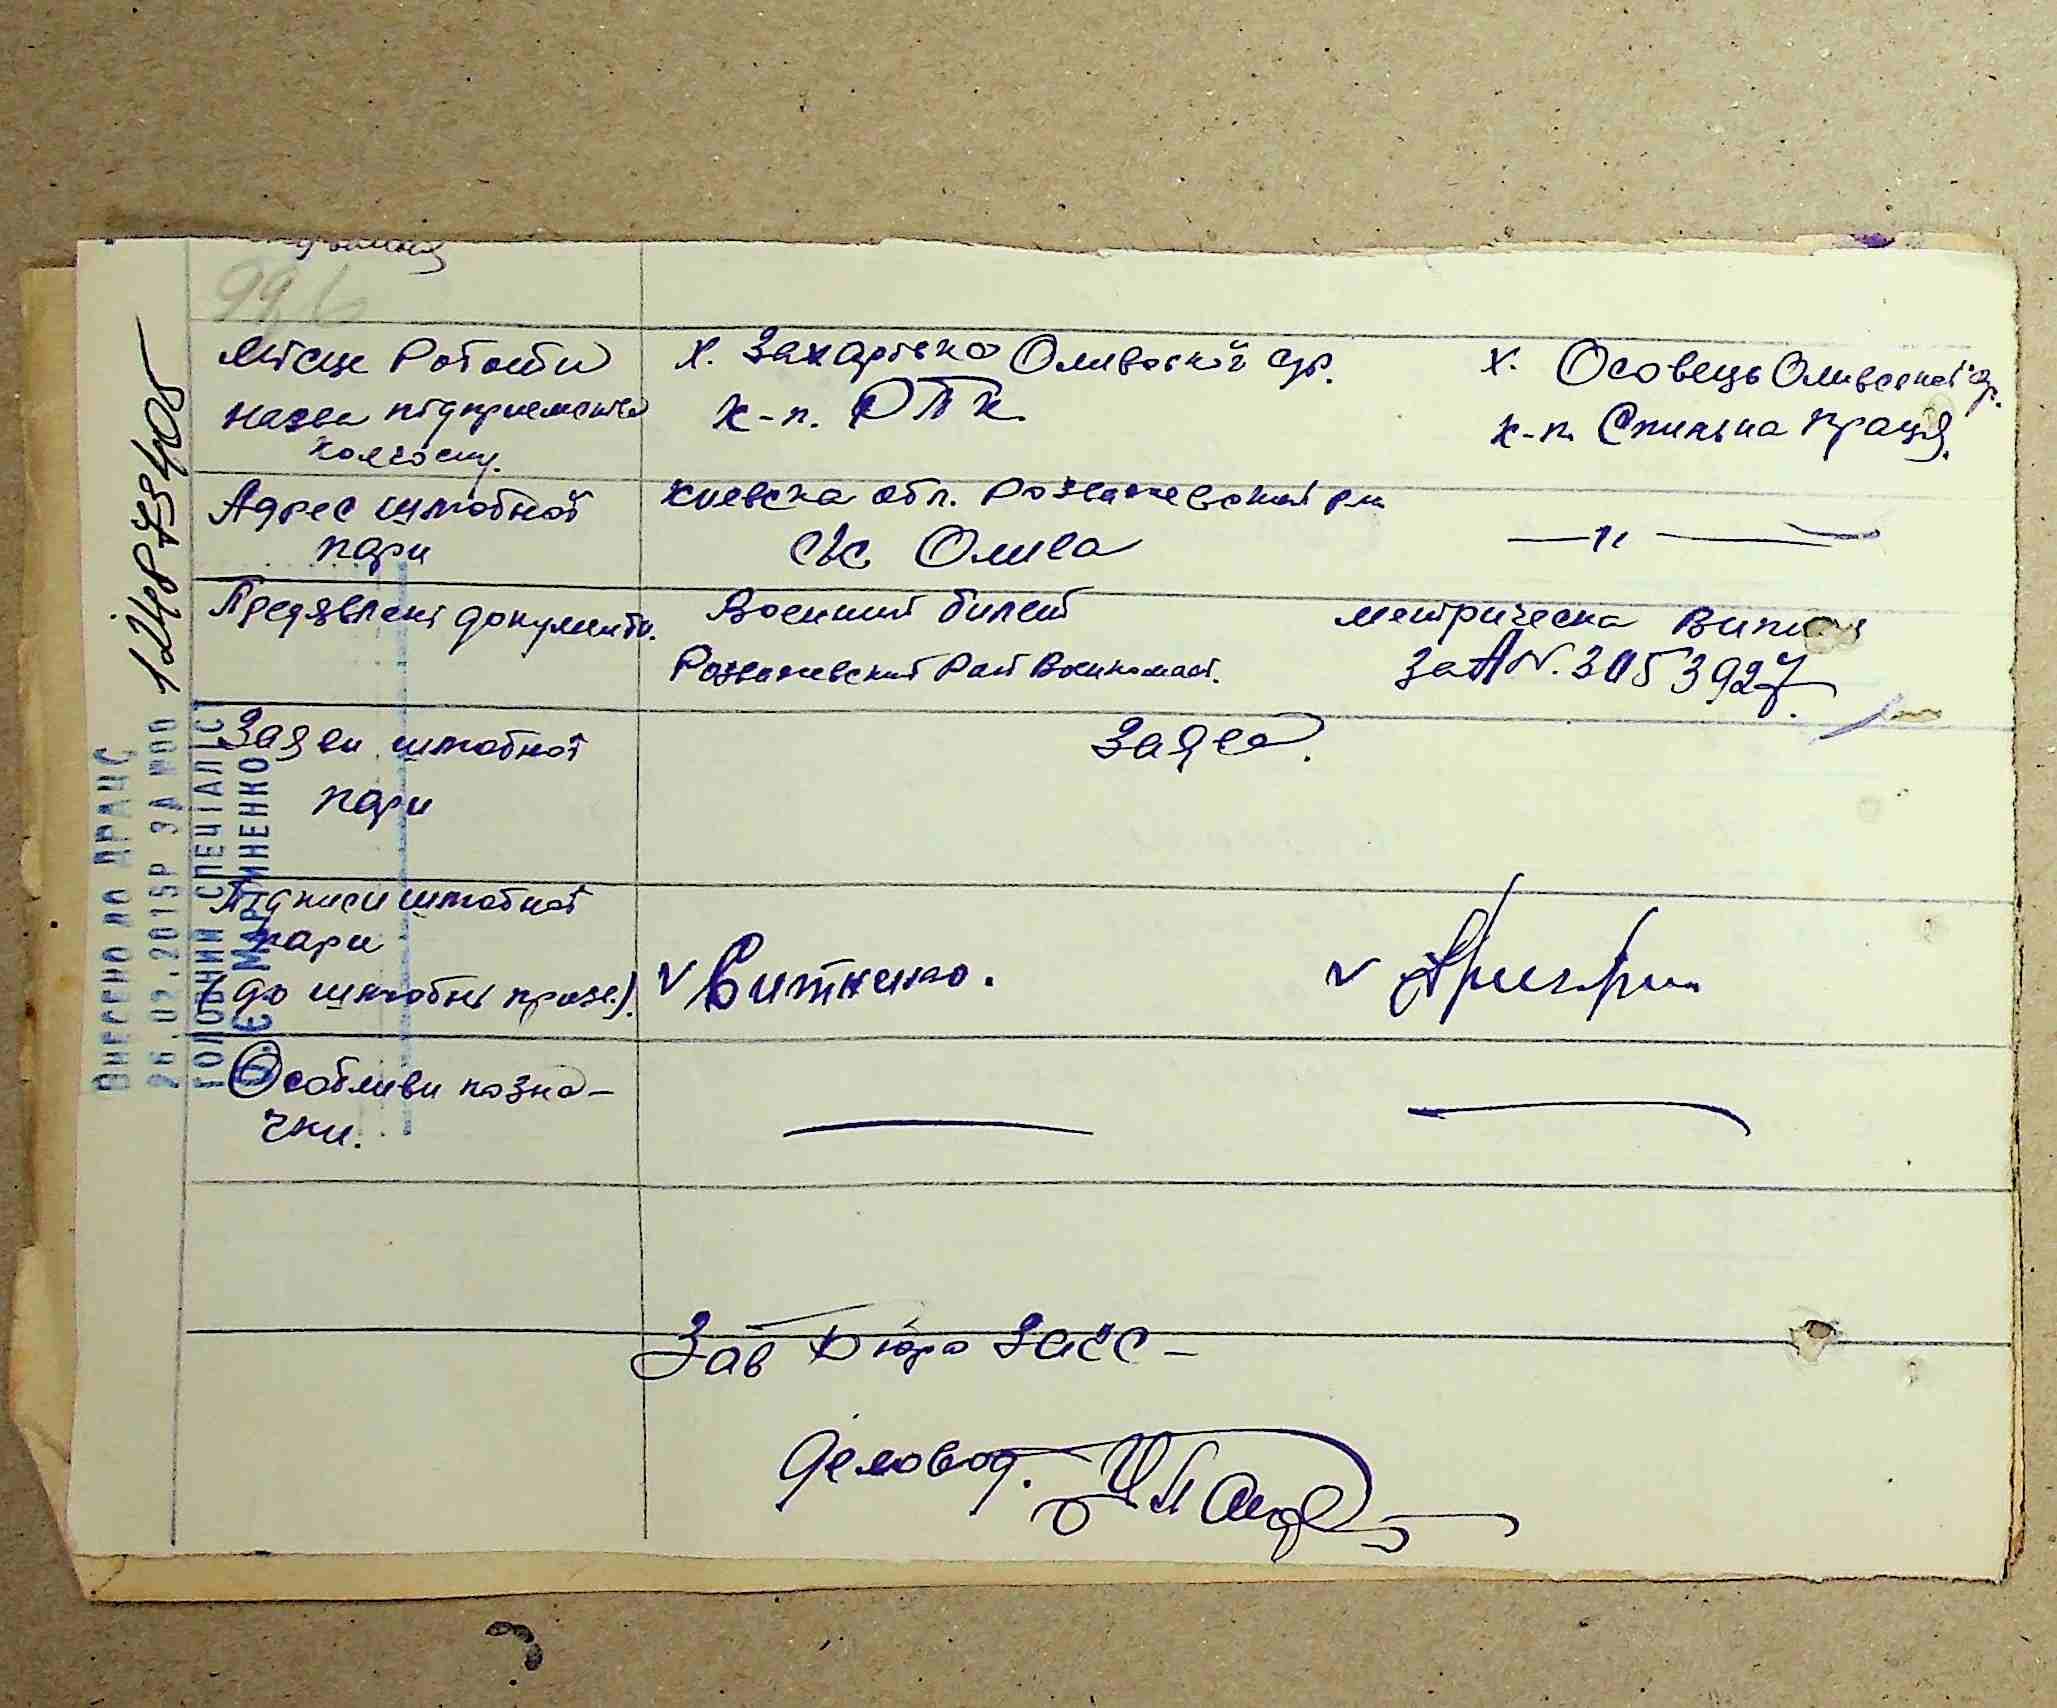 Місце Роботи
назва підприємства
колгоспу.
х. Захарівка Оливської с/р.
к-п. РПК
х. Осовець Оливської с/р.
к-п. Спильна Праця.
Адрес шлюбной
пари
Киевска обл. Розважевський р-н
с/с Олива
—〃—
Предявлені документи.
Военний билет
Розважевский Рай Военкомат.
метрическа Випись
за АN. 3053927.
Заяви шлюбної
пари
Заява.
Підписи шлюбної
пари
(до шлюбні прізв.).
v Витненко.
v
Особливи позна-
чки.
Зав Бюро ЗАГС –
Деловод.
ВНЕСЕНО ДО ДРАЦС
26.02.2015Р ЗА №00 12487340
ГОЛОВНИЙ СПЕЦІАЛІСТ
МАРТИНЕНКО